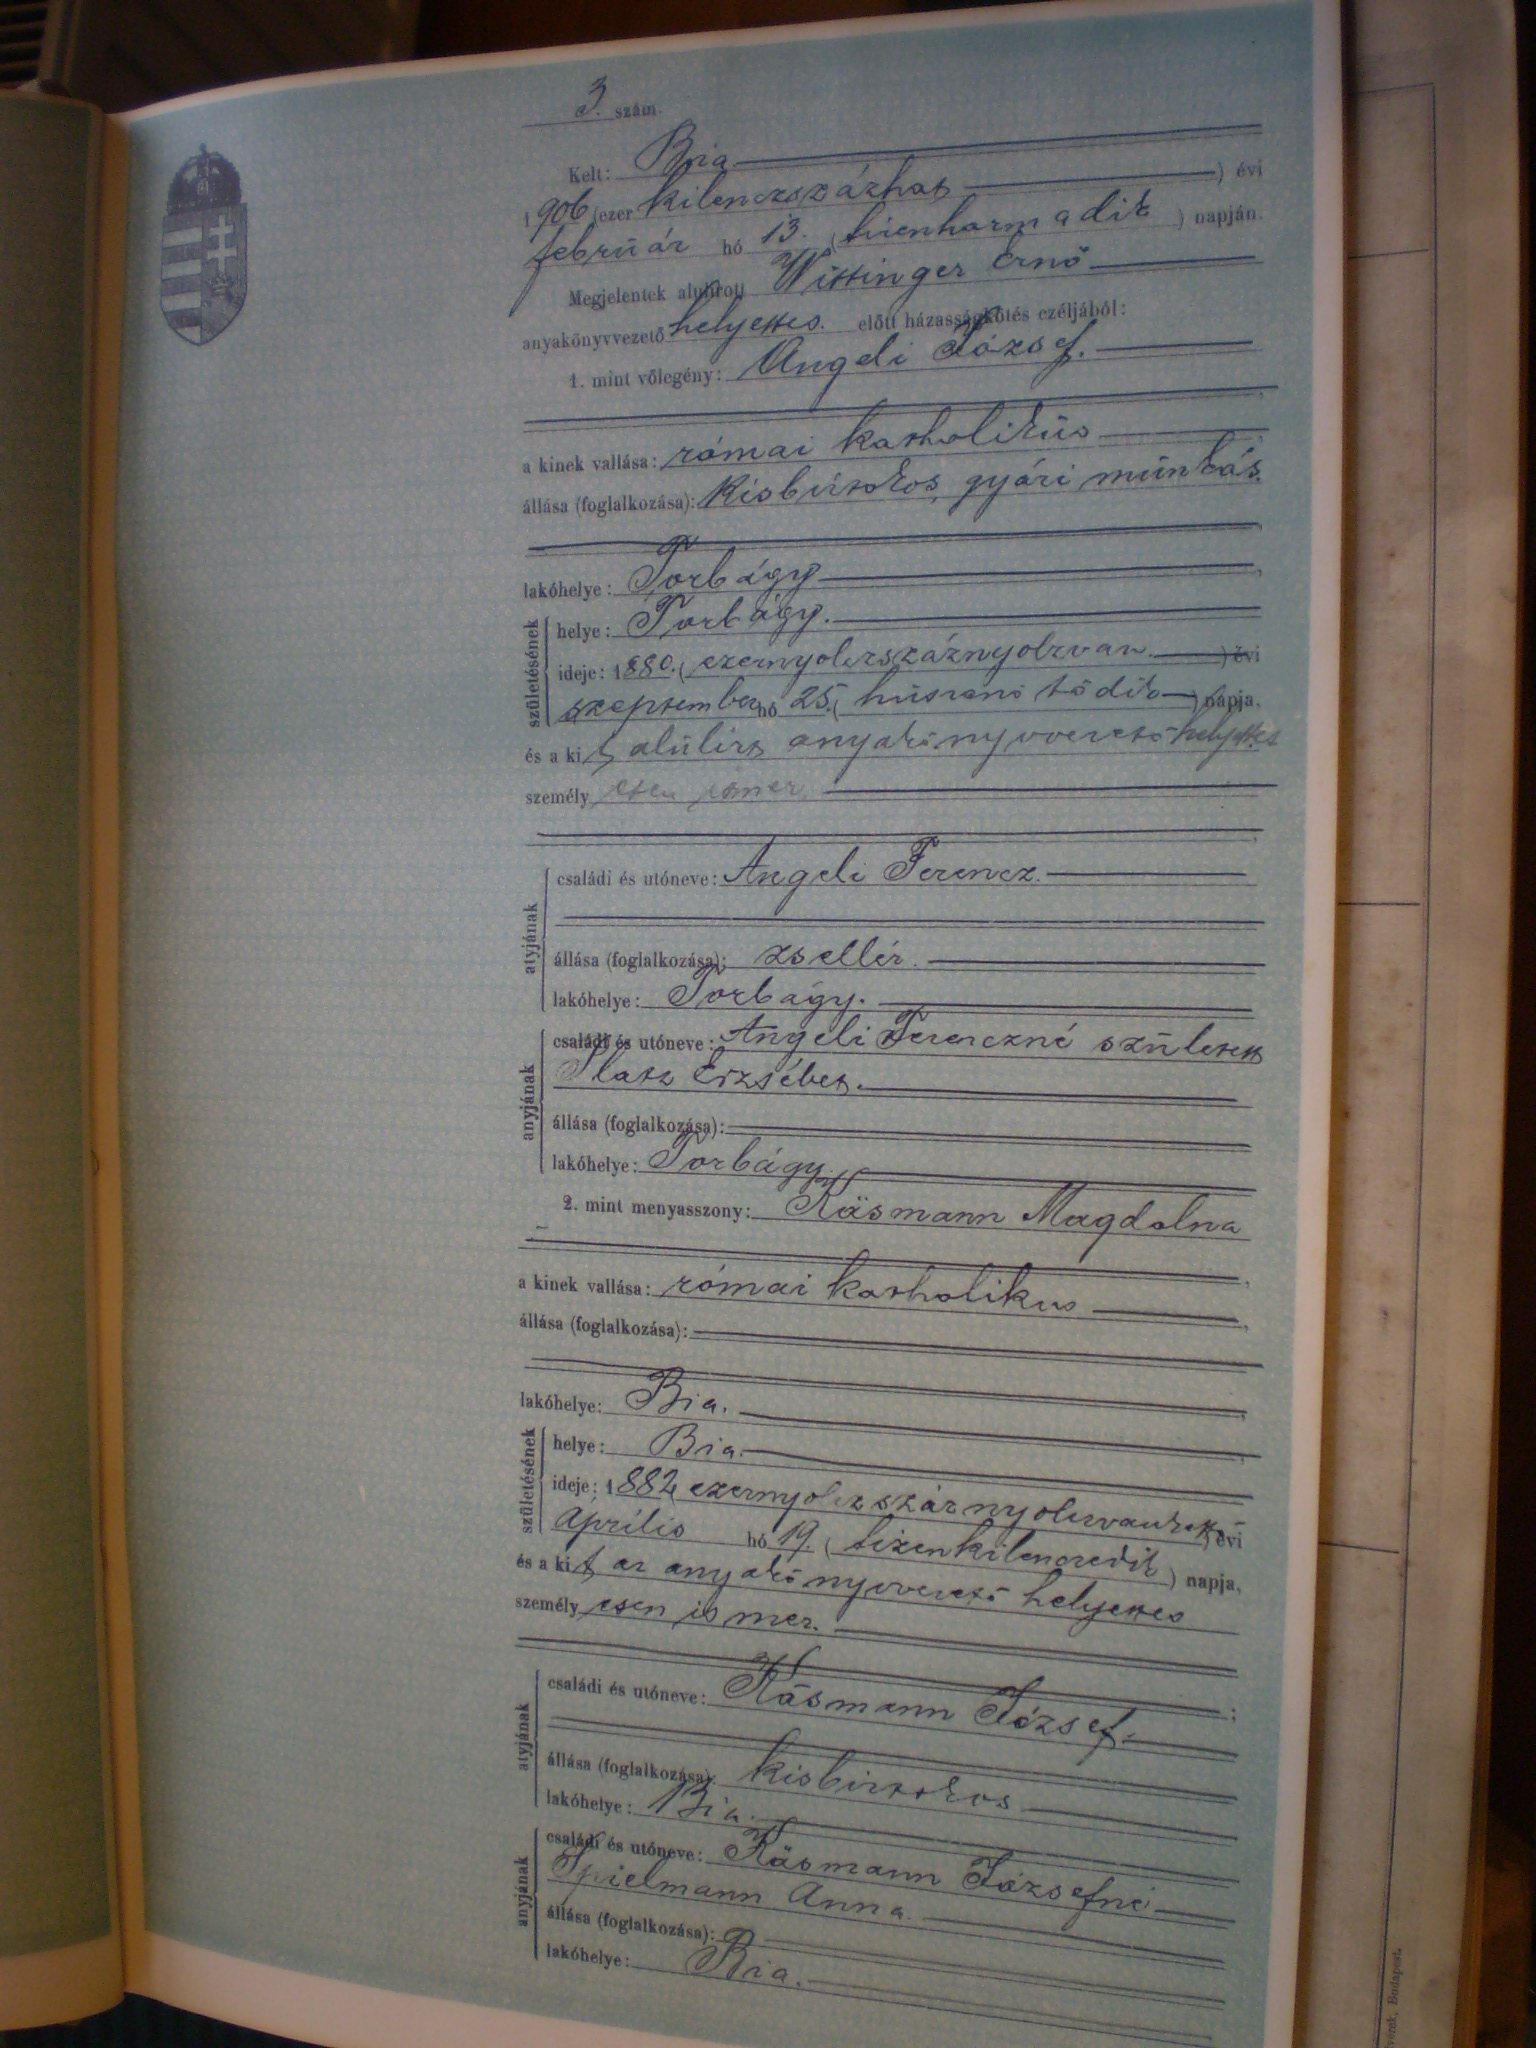 3. szám.
Kelt: Bia
1906 (ezer kilenczszázhat) évi
február hó 13. (tizenharmadik) napján.
Megjelentek alulírott Wittinger Ernő
anyakönyvvezető helyettes. előtt házasságkötés czéljából:
1. mint vőlegény: Angeli József.
a kinek vallása: római katholikus
állása (foglalkozása): Kisbirtokos, gyári munkás.
lakóhelye: Torbágy
születésének
helye: Torbágy.
ideje: 1880. (ezernyolczszáznyolczvan.) évi
szeptember hó 25. (huszonötödik) napja.
és a kit alulirt anyakönyvvezető helyettes
személyesen ismer.
atyjának
családi és utóneve: Angeli Ferencz.
állása (foglalkozása): zsellér.
lakóhelye: Torbágy.
anyjának
családi és utóneve: Angeli Ferenczné született
Erzsébet.
állása (foglalkozása):
lakóhelye: Torbágy.
2. mint menyasszony: Käsmann Magdolna
a kinek vallása: római katholikus
állása (foglalkozása):
lakóhelye: Bia.
születésének
helye: Bia.
ideje: 1882 (ezernyolczszáznyolczvankettő) évi
Április hó 19. (tizenkilenczedik) napja,
és a kit az anyakönyvvezető helyettes
személyesen ismer.
atyjának
családi és utóneve: Käsmann József.
állása (foglalkozása): kisbirtokos
lakóhelye: Bia.
anyjának
családi és utóneve: Käsmann Józsefné
Spielmann Anna.
állása (foglalkozása):
lakóhelye: Bia.
Budapest.